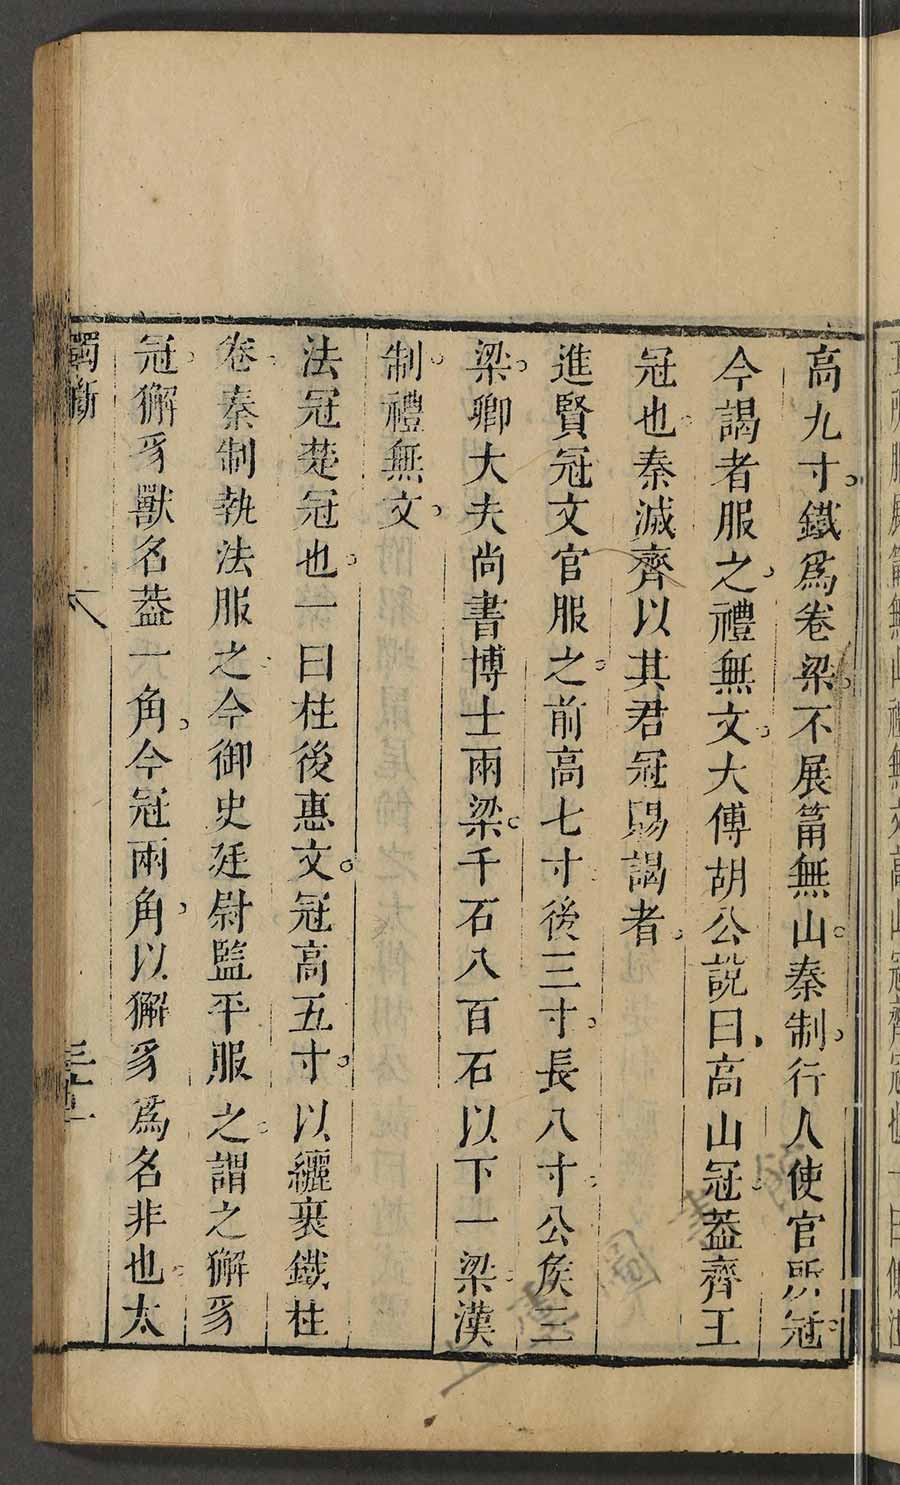 高九寸鐵爲卷梁不展筩無山秦制行人使官所冠
今謁者服之禮無文大傅胡公說曰高山冠葢齊王
冠也秦滅齊以其君冠賜謁者
進賢冠文官服之前高七寸後三寸長八寸公侯三
梁卿大夫尚書博士兩梁千石八百石以下一梁漢
制禮無文
法冠楚冠也一曰柱後惠文冠高五寸以纚裹鐵柱
卷秦制執法服之今御史廷尉監平服之謂之獬豸
冠獬豸獸名葢一角今冠兩角以獬豸爲名非也太
獨斷